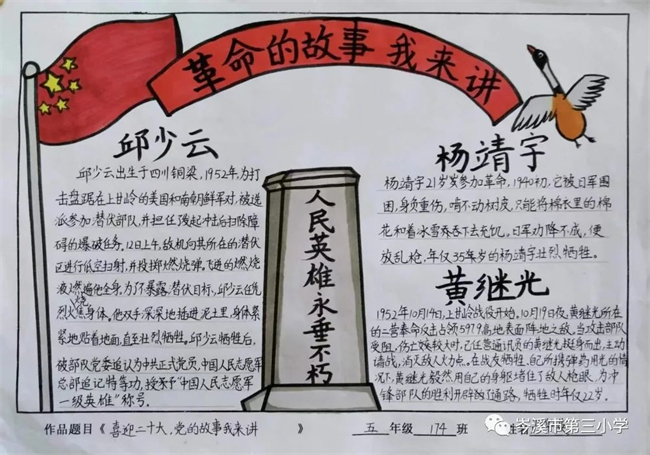 革命的故事 我来讲
邱少云
邱少云出生于四川铜梁，1952年，为打
击盘踞在上甘岭的美国和南朝鲜军对，被选
派参加潜伏部队，并担任发起冲击后扫除障
碍的爆破任务。12日上午，敌机向其所在的潜伏
区进行低空扫射，并投掷燃烧弹。飞迸的燃烧
液燃遍他全身，为了不暴露潜伏目标，邱少云任凭
烈火焦身体。他双手深深地插进泥土里，身体紧
烧
紧地贴着地面，直至壮烈牺牲。邱少云牺牲后，
被部队党委追认为中共正式党员，中国人民志愿军
总部追记特等功，授予了"中国人民志愿军
一级英雄"称号。
人民英雄永垂不朽
杨靖宇
杨靖宇21岁岁参加革命，1940初，它被日军围
困，身负重伤，啃不动树皮，只能将棉衣里的棉
花和着冰雪吞下去充饥。日军功降不成，便
放乱枪，年仅35年岁的杨靖宇壮烈牺牲。
黄继光
1952年10月14日，上甘岭战役开始，10月19日夜，黄继光所在
的二营奉命反击占领597.9高地表面阵地之敌，当攻击部队
受阻，伤亡较大时，已任营通讯员的黄继光挺身而出，主动
请战，消灭敌人火力点。在战友牺牲、自己所携弹药用光的情
况下，黄继光毅然用自己的身躯堵住了敌人枪眼，为冲
锋部队的胜利开辟了通路，牺牲时年仅22岁。
作品题目《 喜迎二十大，党的故事我来讲 》 五 年级 174 班
岑溪市第三小学